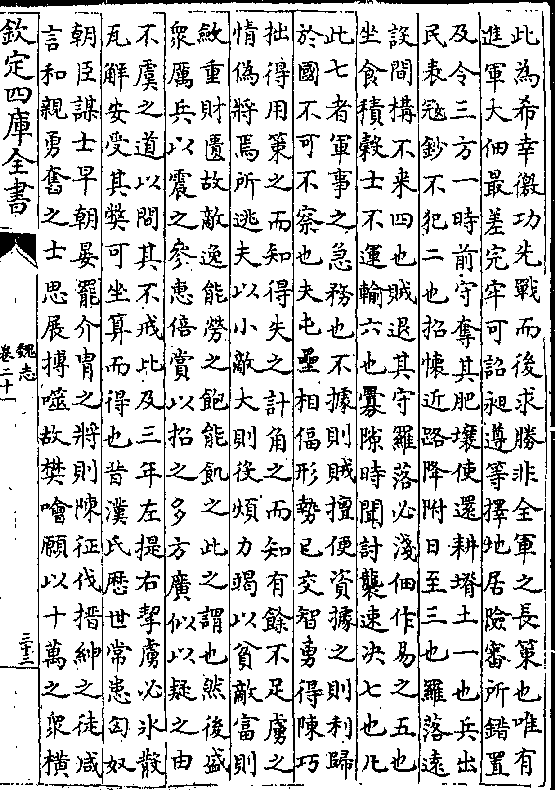 此為希幸徼功先戰而後求勝非全軍之長策也唯有
進軍大佃最差完牢可詔昶遵等擇地居險審所錯置
及令三方一時前守奪其肥壤使還耕塉土一也兵出
民表冦鈔不犯二也招懷近路降附日至三也羅落遠
設間構不来四也賊退其守羅落必淺佃作易之五也
坐食積糓士不運輸六也釁隙時聞討襲速决七也凡
此七者軍事之急務也不據則賊擅便資據之則利歸
於國不可不察也夫屯壘相偪形勢已交智勇得陳巧
拙得用策之而知得失之計角之而知有餘不足虜之
情偽將焉所逃夫以小敵大則後煩力竭以貧敵富則
斂重財匱故敵逸能勞之飽能飢之此之謂也然後盛
衆厲兵以震之參惠倍賞以招之多方廣似以疑之由
不虞之道以間其不戒比及三年左提右挈虜必氷散
瓦解安受其弊可坐算而得也昔漢氏歴世常患匈奴
朝臣謀士早朝晏罷介冑之將則陳征伐搢紳之徒咸
言和親勇奮之士思展搏噬故樊噲願以十萬之衆橫
欽定四庫全書
魏志
卷二十一
三十三